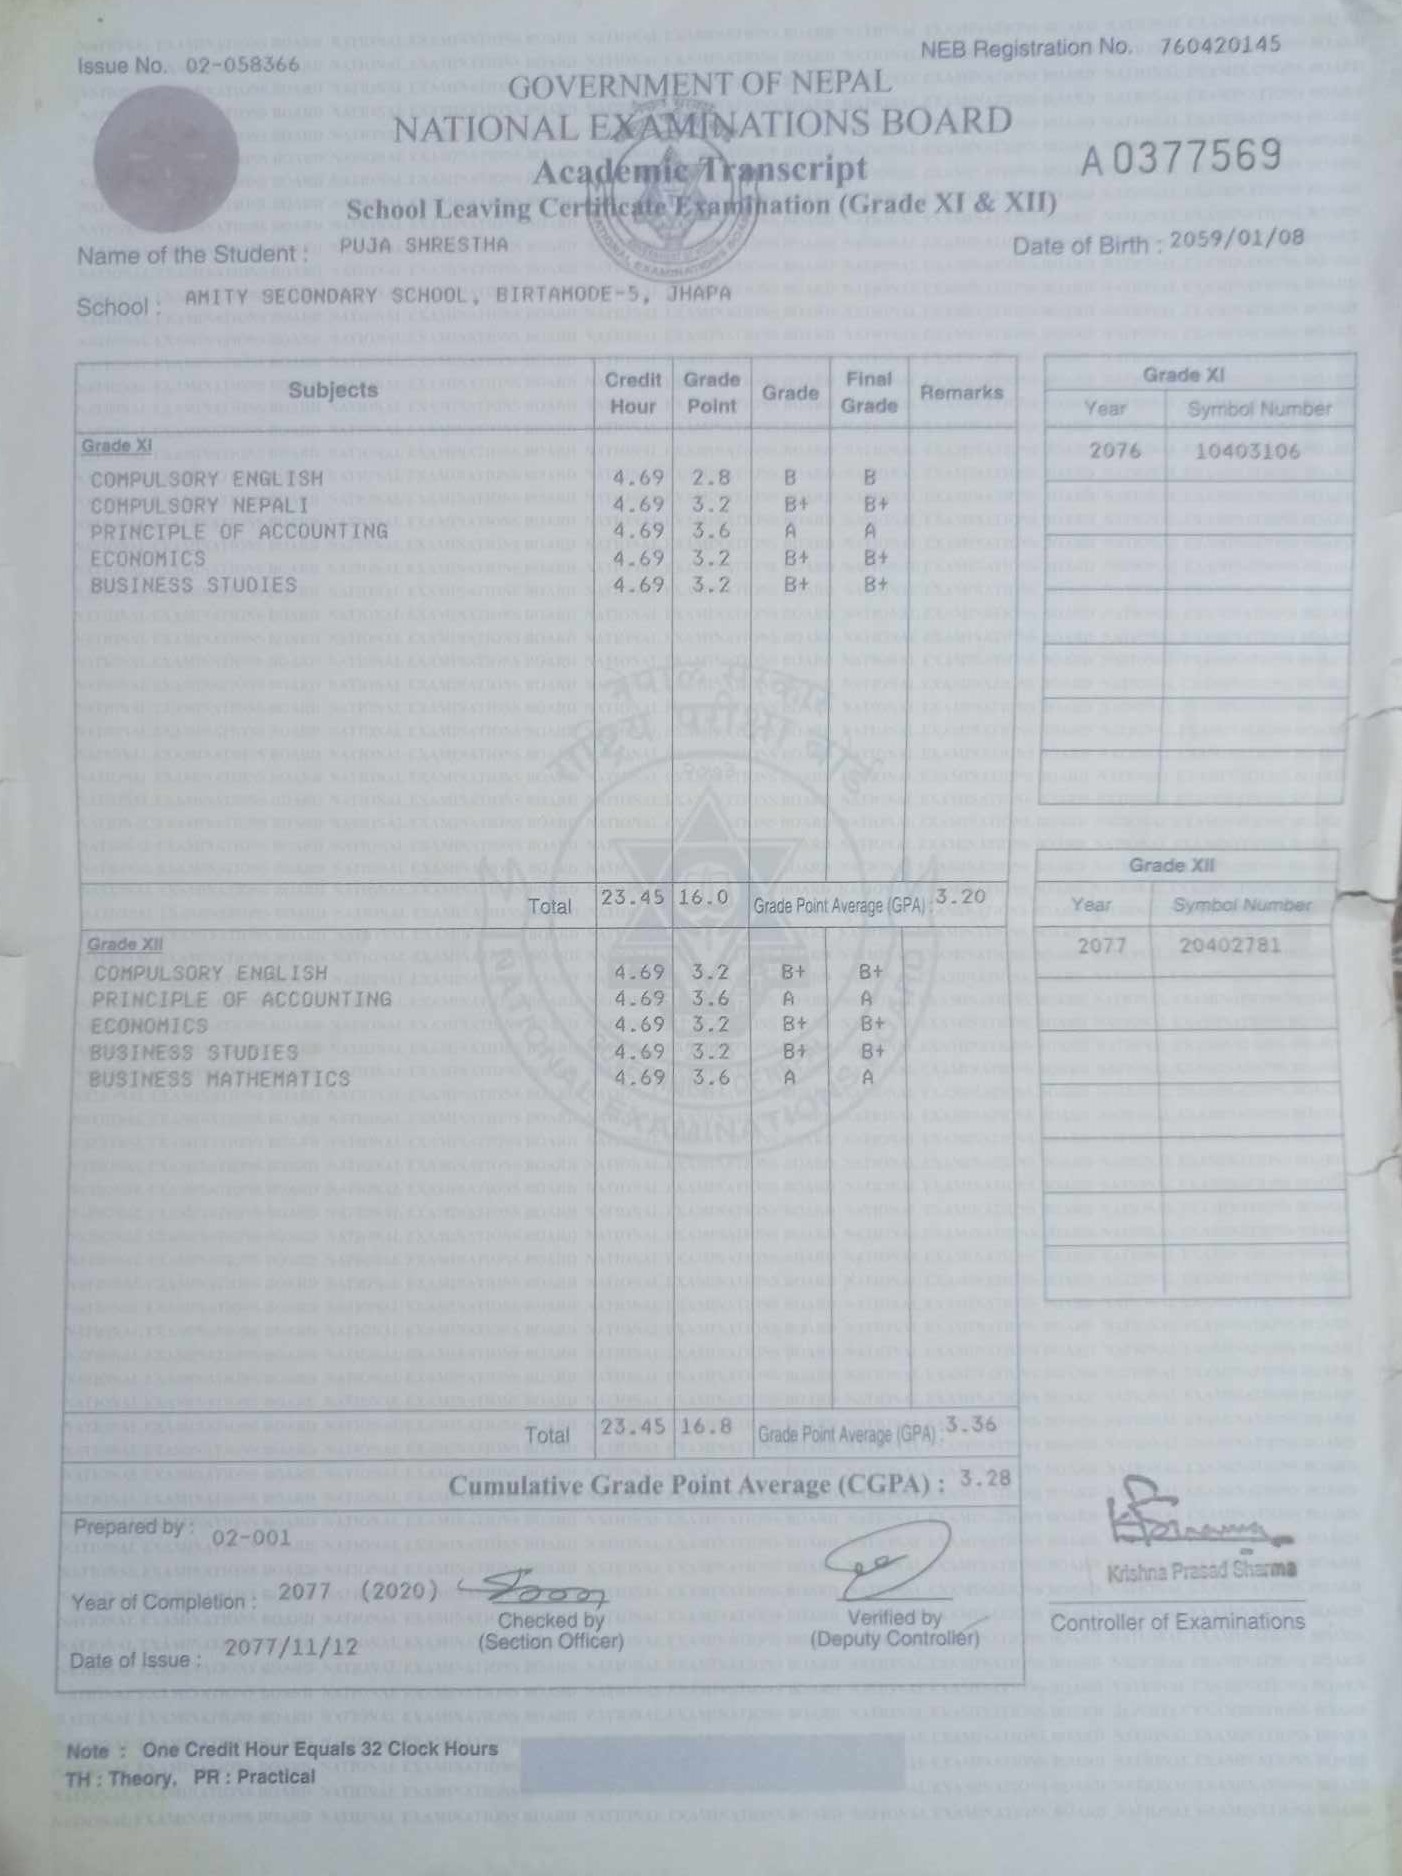 Issue No. 02-058366
NEB Registration No. 760420145
GOVERNMENT OF NEPAL
NATIONAL EXAMINATIONS BOARD
A 0377569
Academic Transcript
School Leaving Certificate Examination (Grade XI & XII)
Name of the Student : PUJA SHRESTHA
Date of Birth : 2059/01/08
School : AMITY SECONDARY SCHOOL, BIRTAMODE-5, JHAPA
Subjects Credit Hour Grade Point Grade Final Grade Remarks
Grade XI
COMPULSORY ENGLISH 4.69 2.8 B B
COMPULSORY NEPALI 4.69 3.2 B+ B+
PRINCIPLE OF ACCOUNTING 4.69 3.6 A A
ECONOMICS 4.69 3.2 B+ B+
BUSINESS STUDIES 4.69 3.2 B+ B+
Total 23.45 16.0 Grade Point Average (GPA) : 3.20
Grade XII
COMPULSORY ENGLISH 4.69 3.2 B+ B+
PRINCIPLE OF ACCOUNTING 4.69 3.6 A A
ECONOMICS 4.69 3.2 B+ B+
BUSINESS STUDIES 4.69 3.2 B+ B+
BUSINESS MATHEMATICS 4.69 3.6 A A
Total 23.45 16.8 Grade Point Average (GPA) : 3.36
Cumulative Grade Point Average (CGPA) : 3.28
Grade XI
Year Symbol Number
2076 10403106
Grade XII
Year Symbol Number
2077 20402781
Prepared by : 02-001
Year of Completion : 2077 (2020)
Date of Issue : 2077/11/12
Checked by
(Section Officer)
Verified by
(Deputy Controller)
Krishna Prasad Sharma
Controller of Examinations
Note : One Credit Hour Equals 32 Clock Hours
TH : Theory, PR : Practical